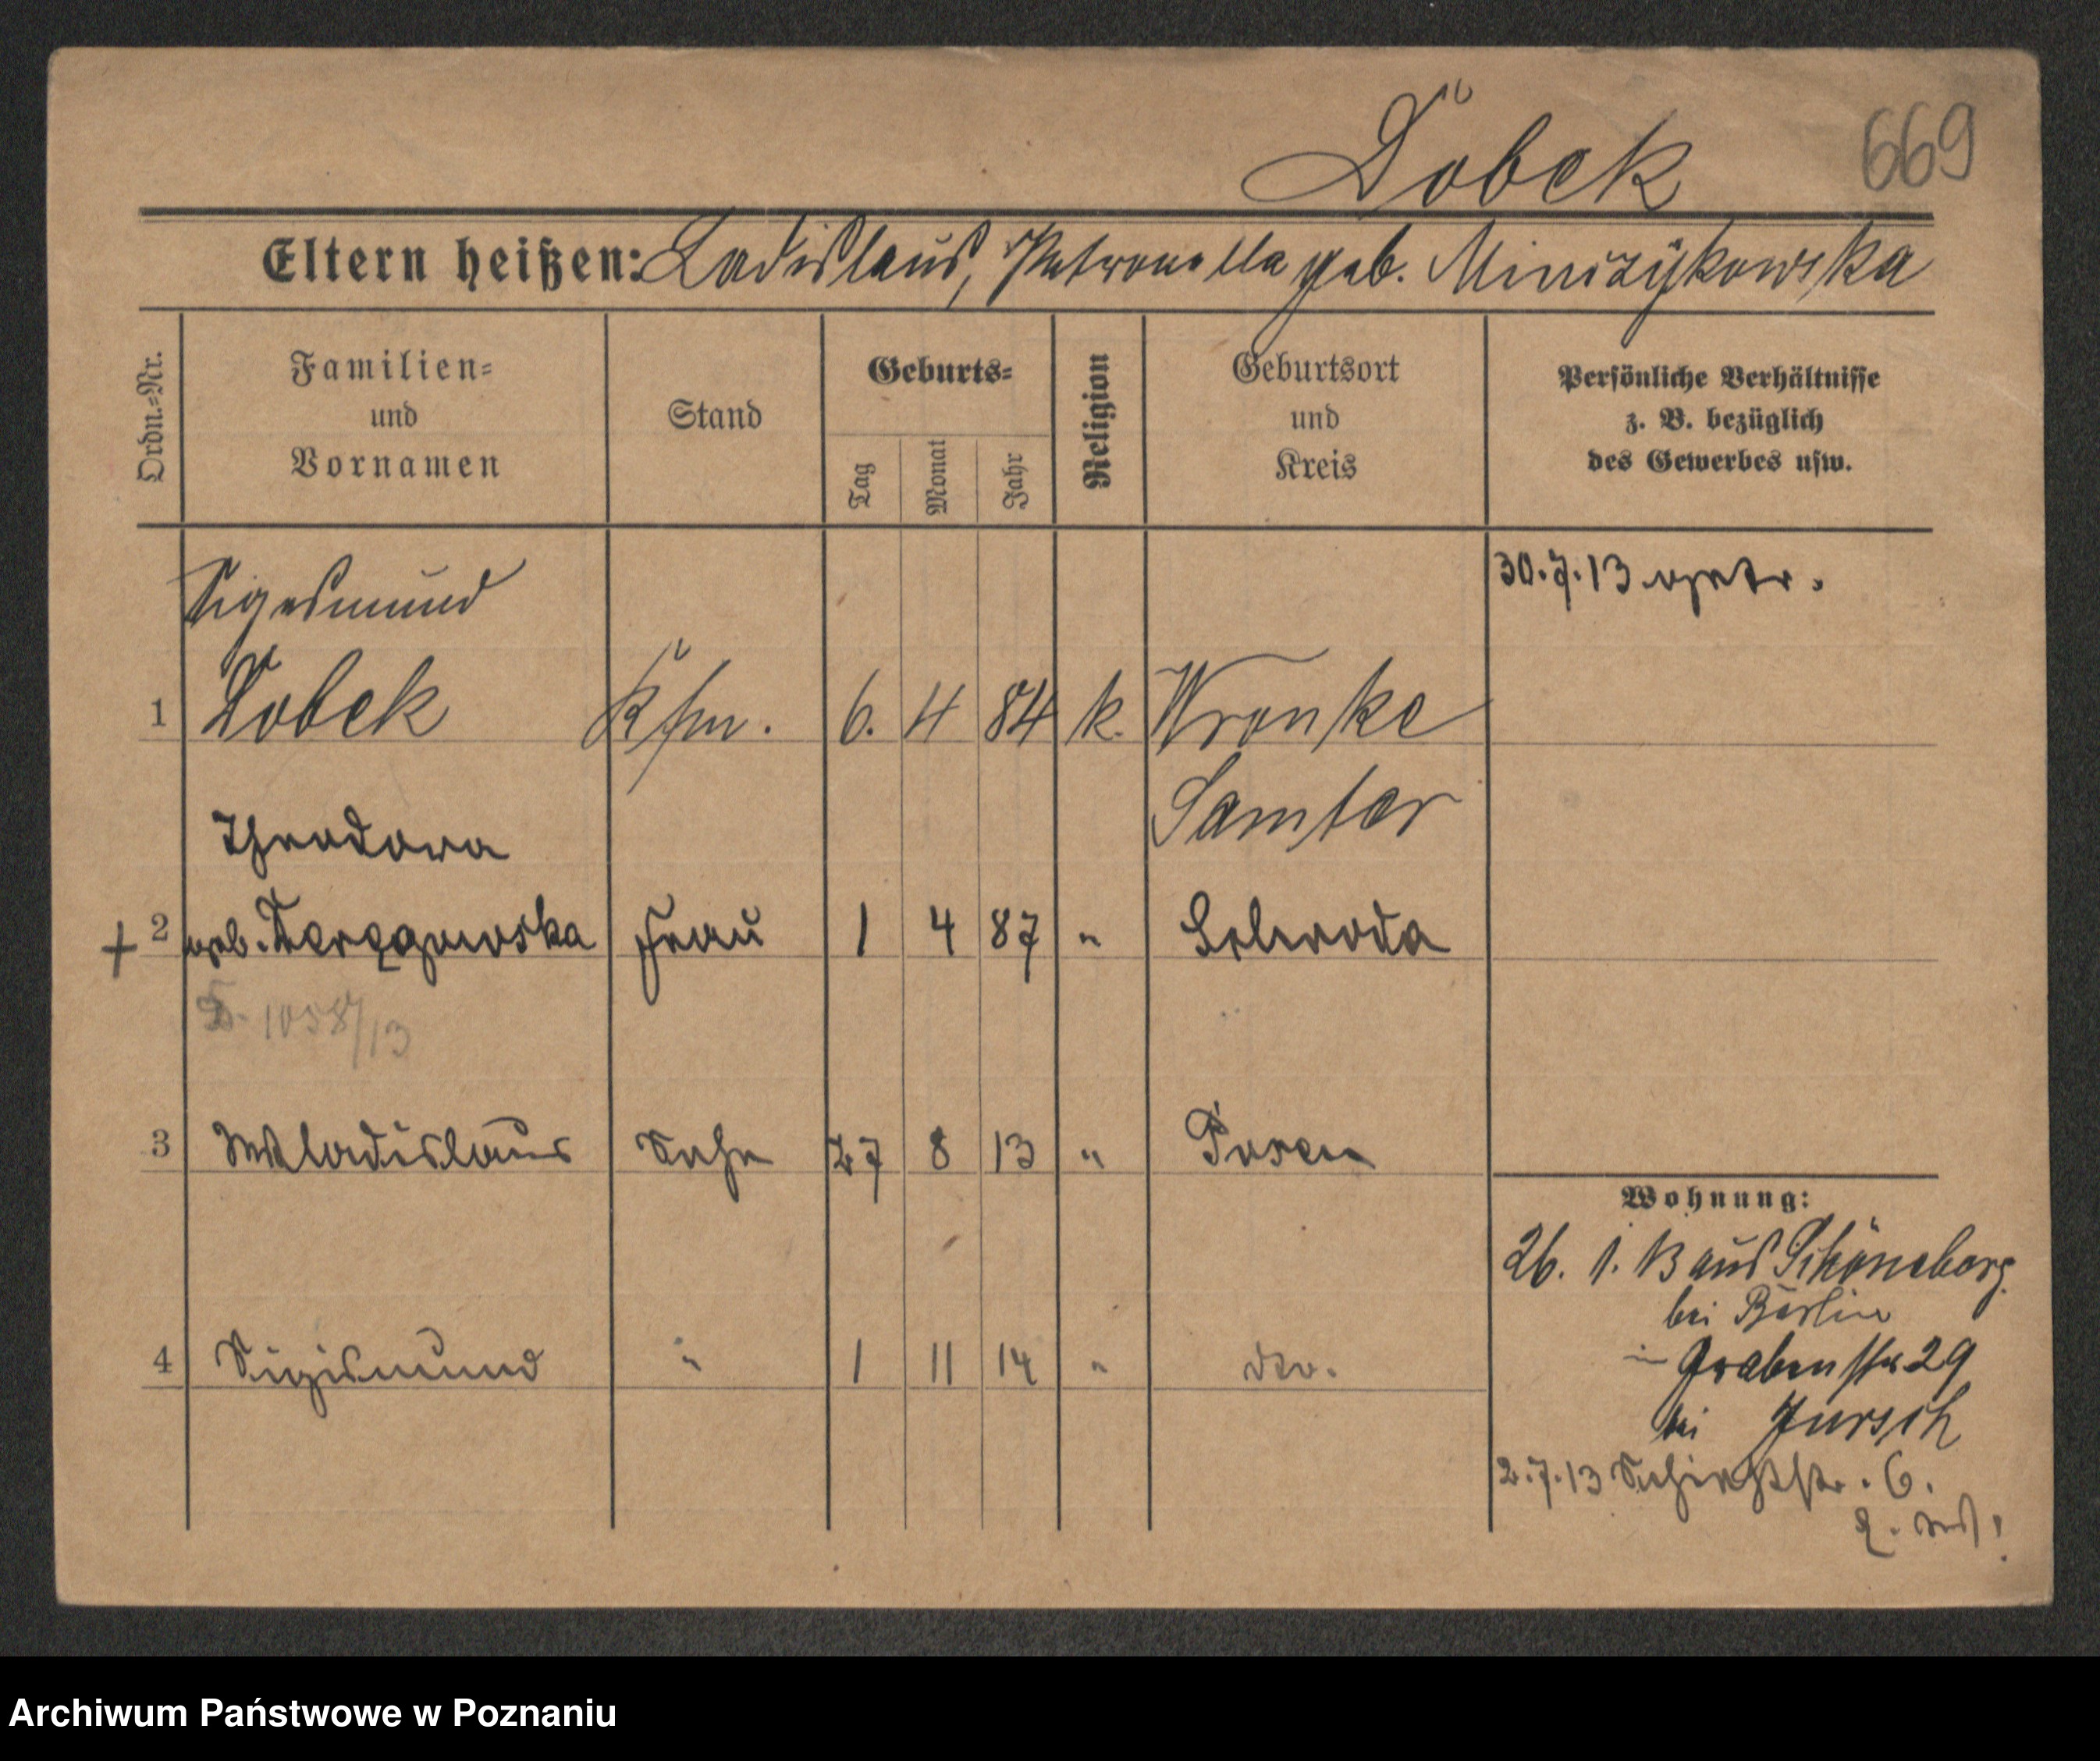 Döbek
669
Eltern heißen: Ladislaus, Petronella geb. Minszÿkowska
Ordn.=Nr.
Familien=
und
Vornamen
Stand
Geburts=
Tag
Monat
Jahr
Religion
Geburtsort
und
Kreis
Persönliche Verhältnisse
z. B. bezüglich
des Gewerbes usw.
Sigesmund
30.7.13
1 Döbek Kfm. 6. 4 84 k. Wronke
Samter
Theodora
+ 2 geb. Frau 1 4 87 " Schroda
1058/13
3 Wladislaus Sohn 27 8 13 " Posen
Wohnung:
26. 1. 13 aus Schöneberg
bei Berlin
4 Sigismund " 1 11 14 " dto.
Grabenstr 29
bei Jursch
2.7.13 6.
Archiwum Państwowe w Poznaniu